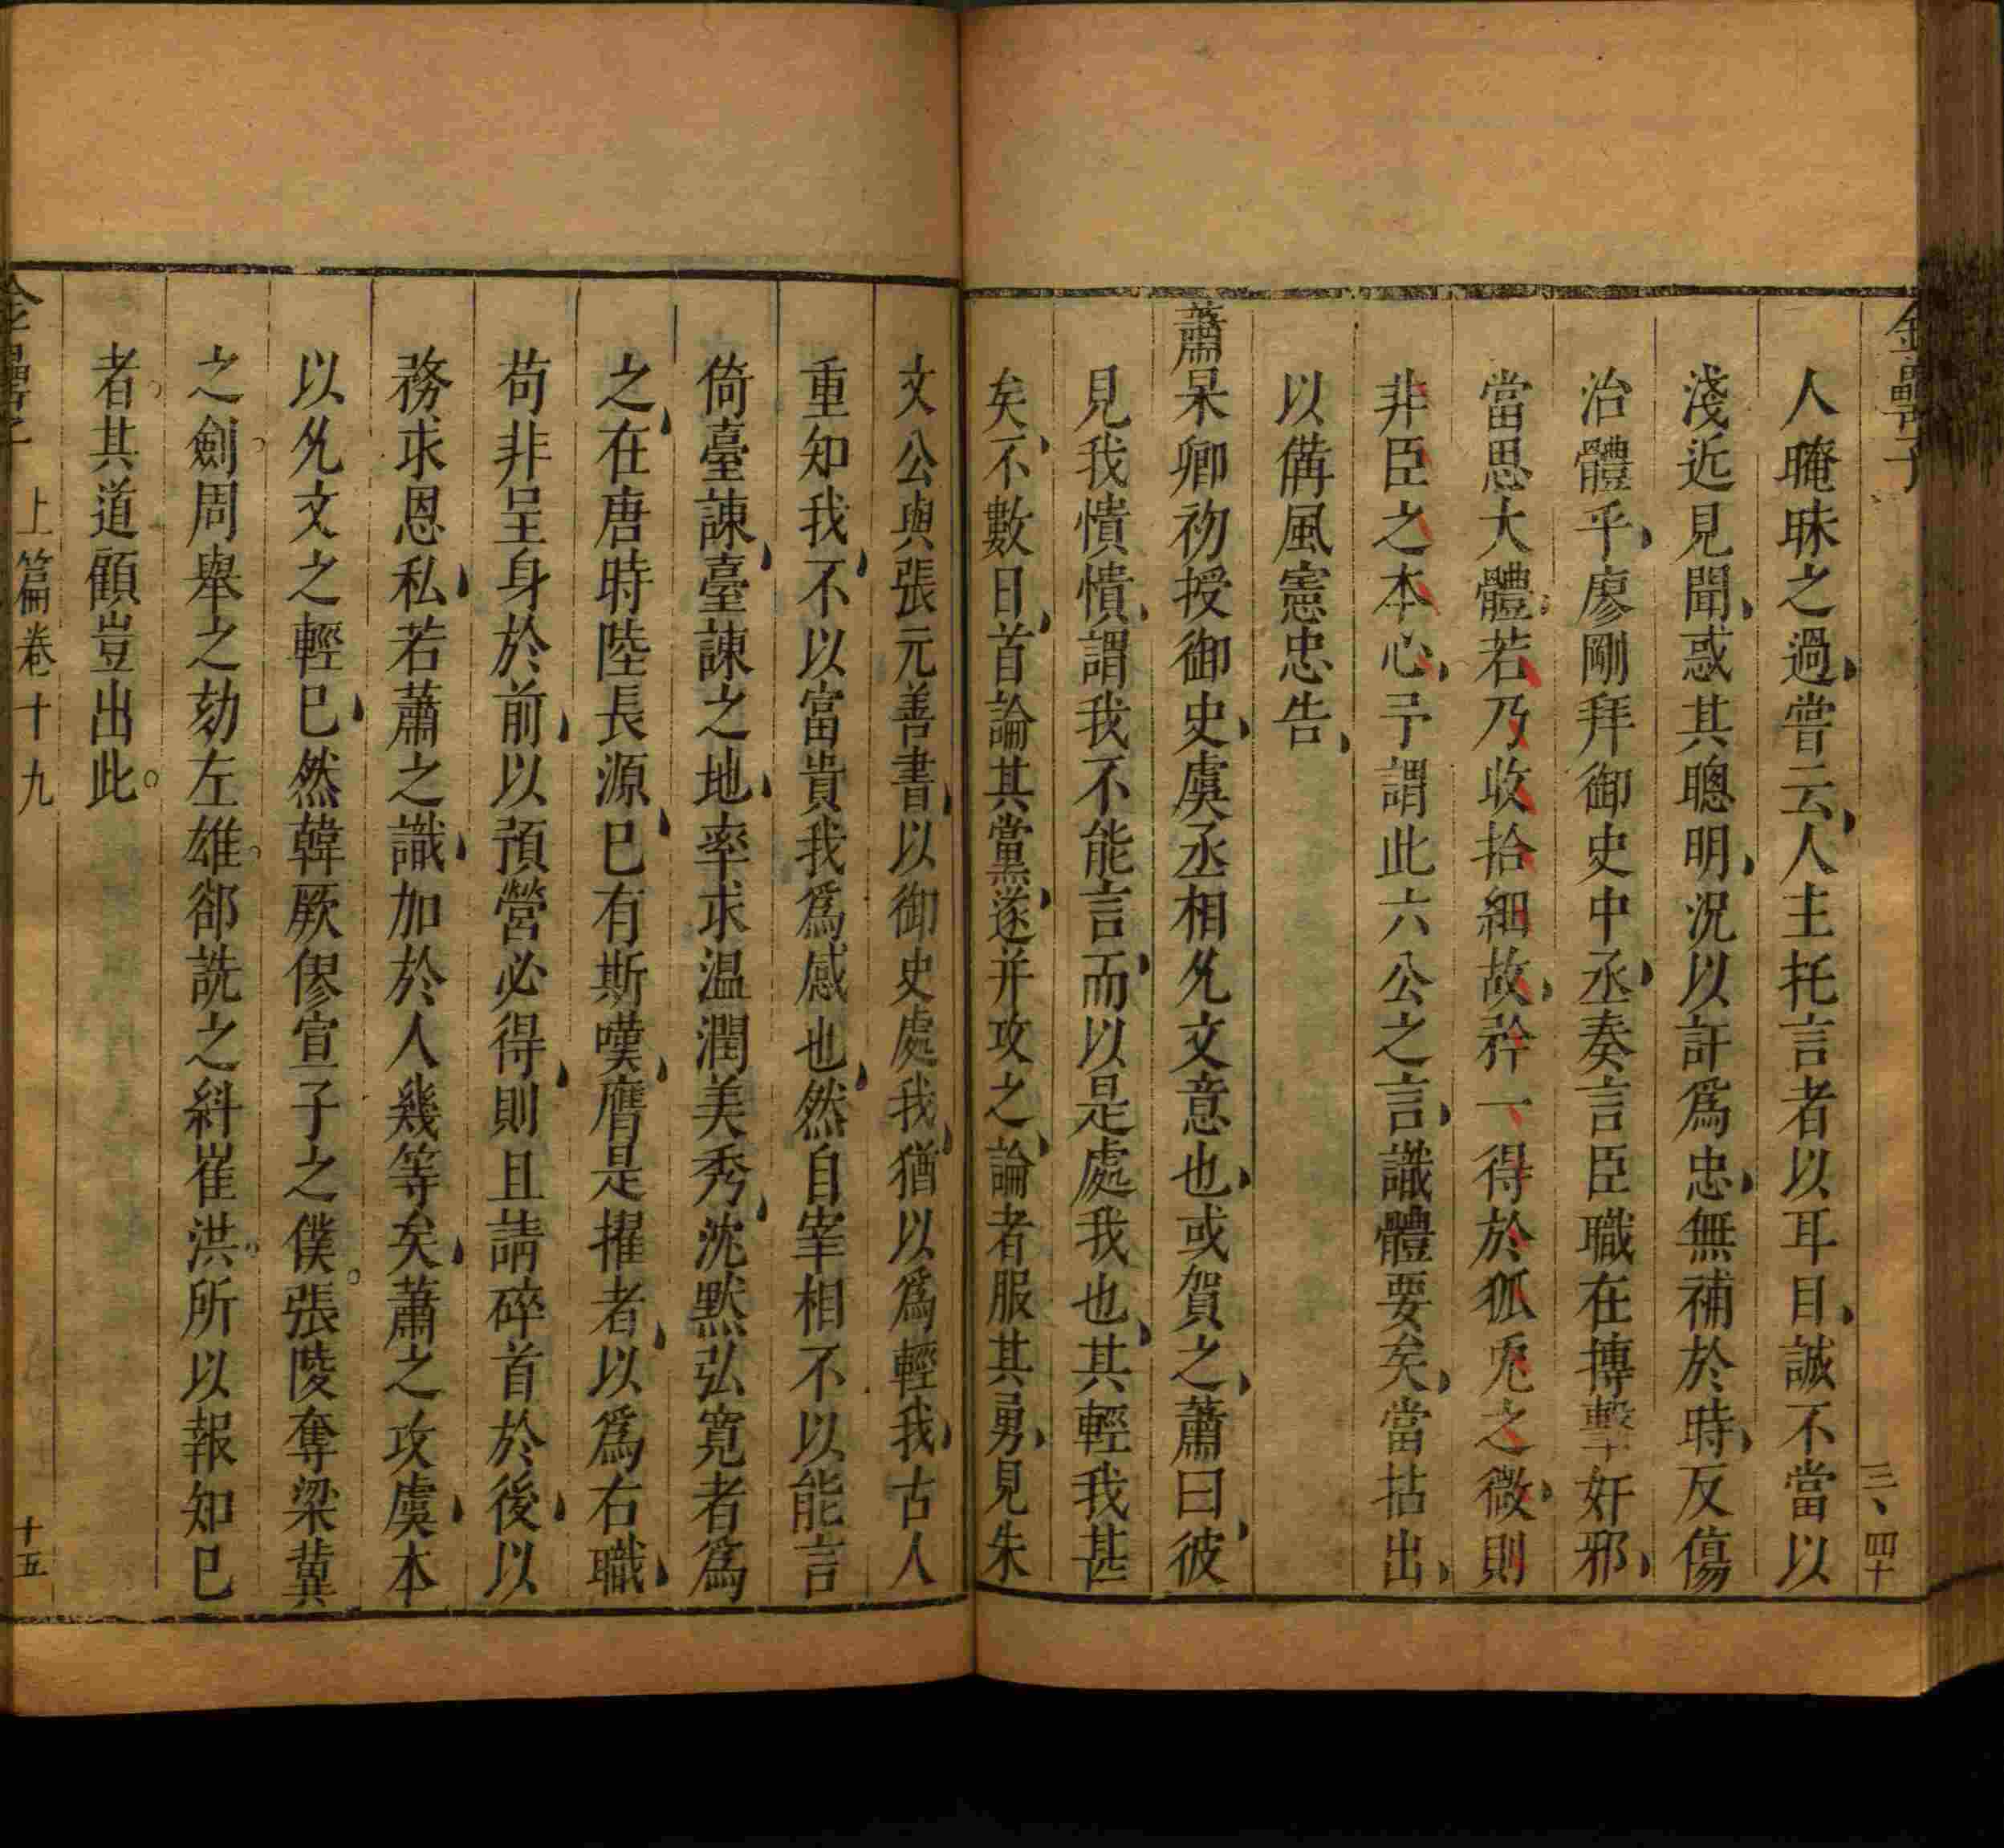 金罍子
三、四十
人晻昧之過嘗云人主托言者以耳目誠不當以
淺近見聞惑其聰明況以訐爲忠無補於時反傷
治體乎廖剛拜御史中丞奏言臣職在摶擊奸邪
當思大體若乃收拾細故矜一得於狐兎之微則
非臣之本心予謂此六公之言識體要矣當拈出
以備風憲忠告
蕭杲卿初授御史虞丞相允文意也或賀之蕭曰彼
見我憒憒謂我不能言而以是處我也其輕我甚
矣不數日首論其黨遂并攻之論者服其勇見朱
文公與張元善書以御史處我猶以爲輕我古人
重知我不以富貴我爲感也然自宰相不以能言
倚臺諫臺諫之地率求温潤美秀沈默弘寬者爲
之在唐時陸長源已有斯嘆膺是擢者以爲右職
苟非呈身於前以預營必得則且請碎首於後以
務求恩私若蕭之識加於人幾等矣蕭之攻虞本
以允文之輕已然韓厥僇宣子之僕張陵奪梁冀
之劍周舉之劾左雄郤詵之糾崔洪所以報知已
者其道顧豈出此
金罍子
上篇卷十九
十五